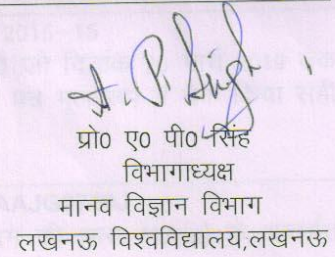 A. P. Singh
प्रो0 ए0 पी0 सिंह
विभागाध्यक्ष
मानव विज्ञान विभाग
लखनऊ विश्वविद्यालय,लखनऊ